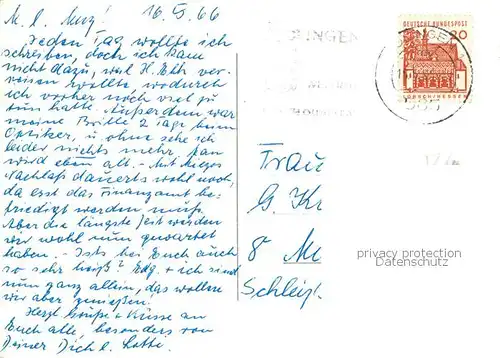 M. l. Murz! 16.5.66
Jeden Tag wollte ich
schreiben, doch ich kam
nicht dazu, weil H. Ehk ver-
reisen wollte, wodurch
ich vorher noch viel zu
tun hatte. Außerdem war
meine Brille 2 Tage beim
Optiker, u. ohne sehe ich
leider nichts mehr. Man
wird eben alt. - Mit
Nachlaß dauerts wohl noch,
da erst das Finanzamt be-
friedigt werden muß.
Aber die längste Zeit werden
wir wohl nun gewartet
haben. - Ists bei Euch auch
so sehr heiß? Edg. + ich sind
nun ganz allein, das wollen
wir aber genießen!
Herzl. Grüße + Küsse an
Euch alle, besonders von
Deiner Dich l. Lotti.
DEUTSCHE BUNDESPOST
20
LORSCH/HESSEN
INGEN
Frau
G. Kr
8 Mü
Schleiß
privacy protection
Datenschutz